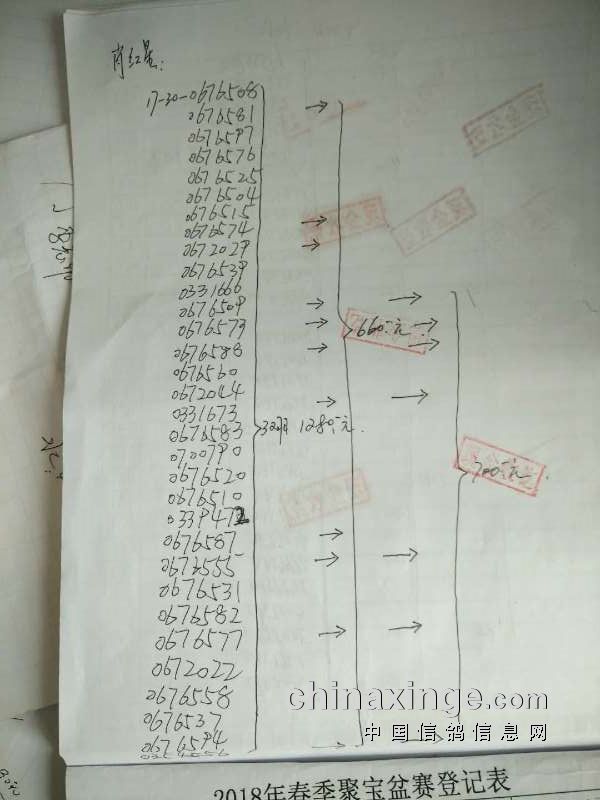 肖红星:
17-30-0676508
0676581
0676597
0676576
0676525
0676504
0676515
0676574
0672029
0676539
0331666
0676509
0676573
0676588
0676560
0672044
0331673
0676583
0700790
0676520
0676510
0339472
0676587
0676555
0676531
0676582
0676577
0672022
0676558
0676537
0676594
32羽 1280元.
660元
700元.
chinaxinge.com
中国信鸽信息网
2018年春季聚宝盆赛登记表